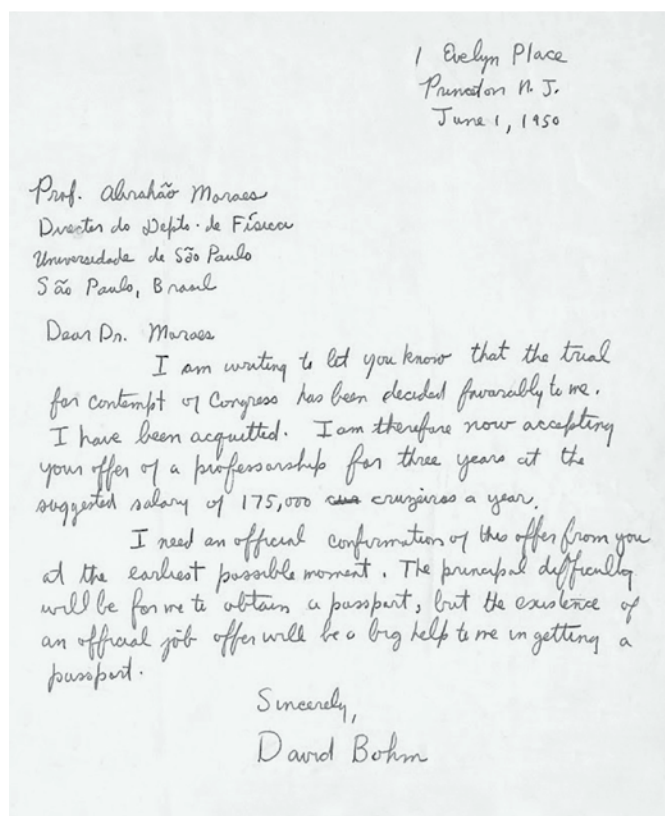 1 Evelyn Place
Princeton N. J.
June 1, 1950
Prof. Abrahão Moraes
Director do Depto. de Física
Universidade de São Paulo
São Paulo, Brasil
Dear Dr. Moraes
I am writing to let you know that the trial
for contempt of Congress has been decided favorably to me.
I have been acquitted. I am therefore now accepting
your offer of a professorship for three years at the
suggested salary of 175,000 cruzeiros a year.
I need an official confirmation of this offer from you
at the earliest possible moment. The principal difficulty
will be for me to obtain a passport, but the existence of
an official job offer will be a big help to me in getting a
passport.
Sincerely,
David Bohm